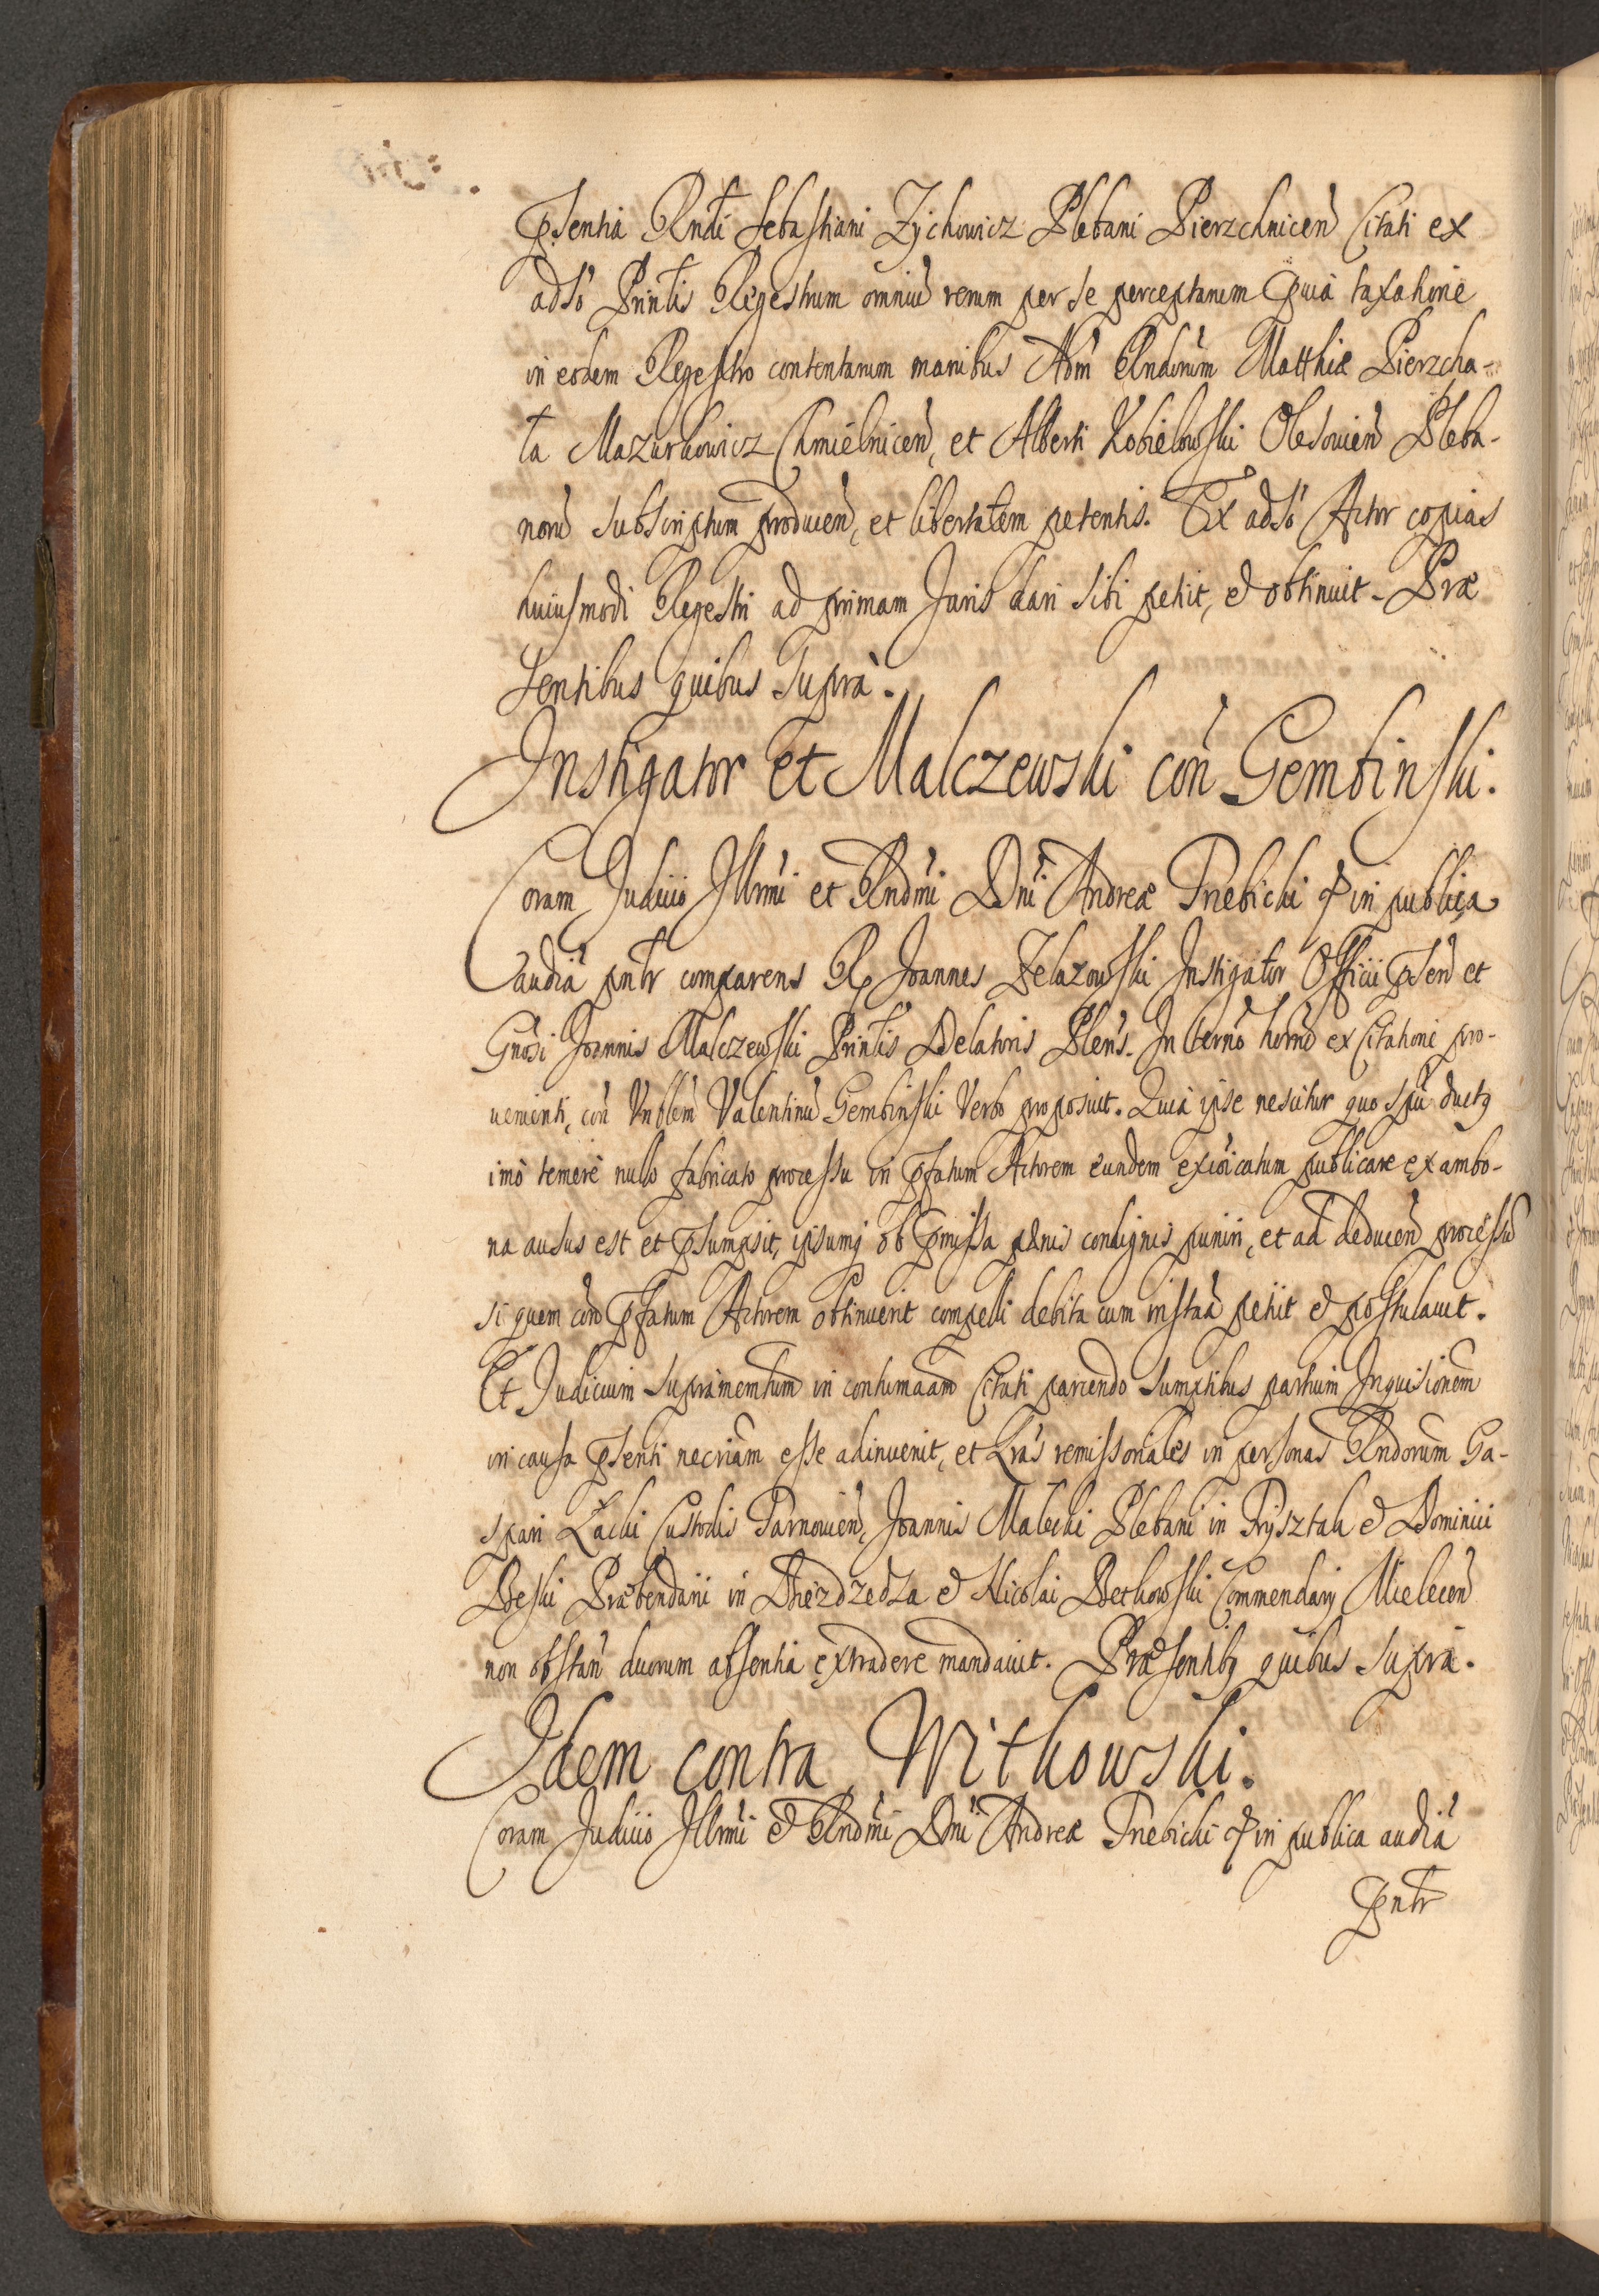 Psentia Rndi Sebastiani Zychowicz Plebani Pierzchnicen Citati ex
adso Printis Regestrum omniu rerum per se perceptarum Pvia taxatione
in eodem Regestro contentarum manibus Adm Rndorum Matthiæ Pierzcha-
ta Mazurkowicz Chmielnicen, et Alberti Kobielowski Olesovien Pleba-
noru subscriptum producen, et libertatem petentis. Ex adso Actor copias
huiusmodi Regestri ad primam Juris dari sibi petiit, & obtinuit. Præ
sentibus quibus supra.
Instigator et Malczewski con Gembinski.
Coram Judicio Illrmi et Rndmi Dni Andreæ Trebicki & in publica
audia pntr comparens Rp Joannes Zelazowski Instigator Officii Psen et
Gnosi Joannis Malczewski Printis Delatoris Plens. In termo horno ex Citatione pro-
venienti, con Vnblem Valentinu Gembinski Verbo proposuit. Quia ipse nescitur quo spu ductq
imo temere nullo fabricato processu in Pfatum Actorem eundem exicatum publicare ex ambo-
na ausus est et Psumpsit, ipsumq ob Pmissa pænis condignis puniri, et ad deducen processu
si quem con Pfatum Actorem obtinuerit compelli debita cum instaa petiit & postulavit.
Et Judicium suprimentum in contumaam Citati parcendo sumptibus partium Inquisionem
in causa Psenti necriam esse adinvenit, et Lras remissoriales in personas Rndorum Ga-
spari Łacki Custodis Tarnovien, Joannis Malecki Plebani in Frysztak & Dominici
Beski Præbendarii in Dhezdzedza & Nicolai Bethowski Commendarij Mielecen
non obstan duorum absentia extradere mandavit. Præsentibq quibus supra.
Idem contra Witkowski.
Coram Judicio Illrmi & Rndmi Dni Andreæ Trebicki & in publica audia
Pntr